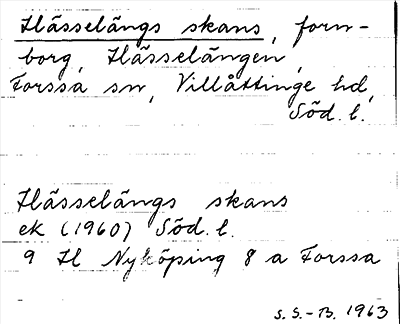 Hässelängs skans, forn-
borg, Hässelängen,
Forssa sn, Villåttinge hd,
Söd. l.
Hässelängs skans
ek (1960) Söd. l.
9 H Nyköping 8 a Forssa
S. S.-B. 1963